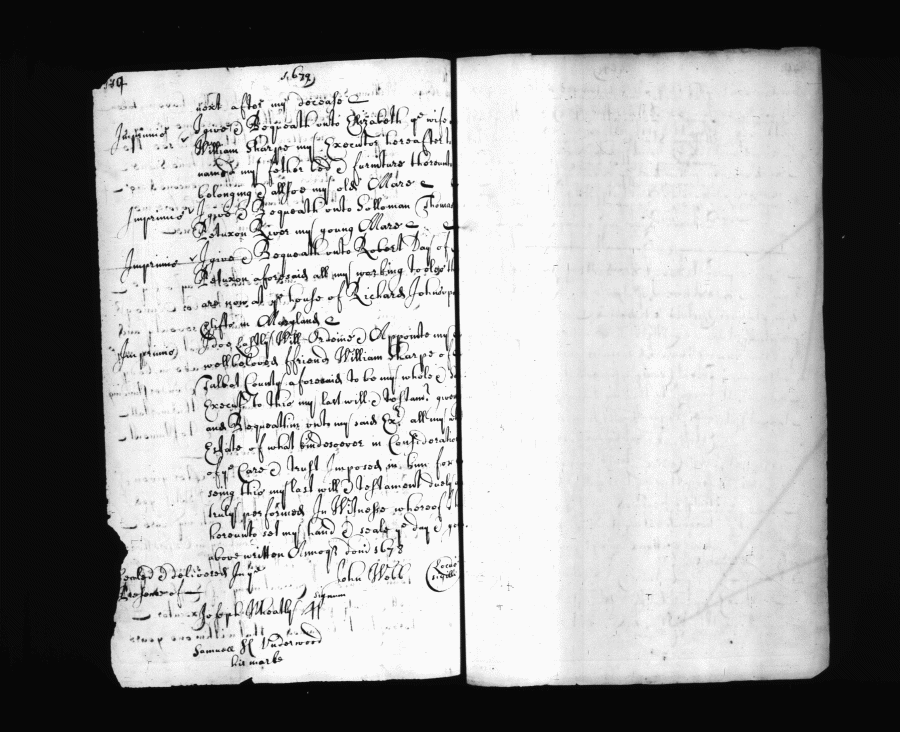 1679
next after my decease
Imprimis I give & Bequeath unto Elizabeth ye wife
William Sharpe my Executor hereafter
named my fether bed & furniture thereunto
belonging & allsoe my old Mare
Imprimis I give & Bequeath unto Solloman Thomas
Petuxon River my young Mare
Imprimis I give & Bequeath unto Robert Day of
Petuxon aforesaid all my working tooles
are now at ye house of Richard Johns
Clifts in Maryland
Imprimis I doe Lastly Will Ordeine & Appointe my
well beloved ffriend William Sharpe of
Talbot County aforesaid to be my whole &
Execut. to this my last will & testamt. give
and Bequeathing unto my said Exr. all my
Estate of what kindesoever in Consideration
of ye Care & trust Imposed in him for
seing this my last will & testament duely
truly performed In Witnesse whereof I
hereunto set my hand & seale ye day &
above written Annoq. doni 1678
Sealed & delivered In ye John Well Locus
Presence of sigilli
Joseph signum
Samuell Underwood
his marke